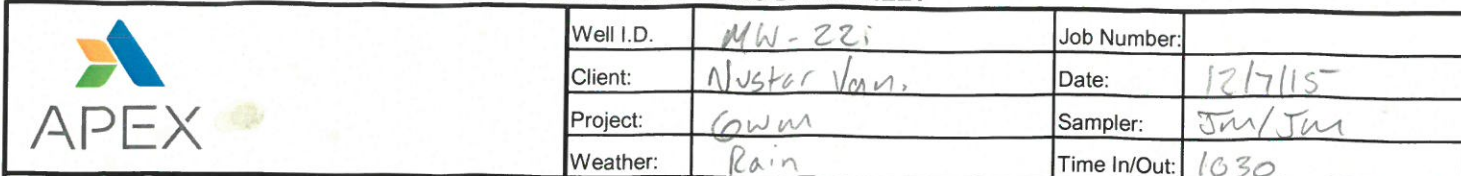 APEX
Well I.D. MW-22i Job Number:
Client: Nustar Van. Date: 12/7/15
Project: GWM Sampler: JM/JM
Weather: Rain Time In/Out: 1030